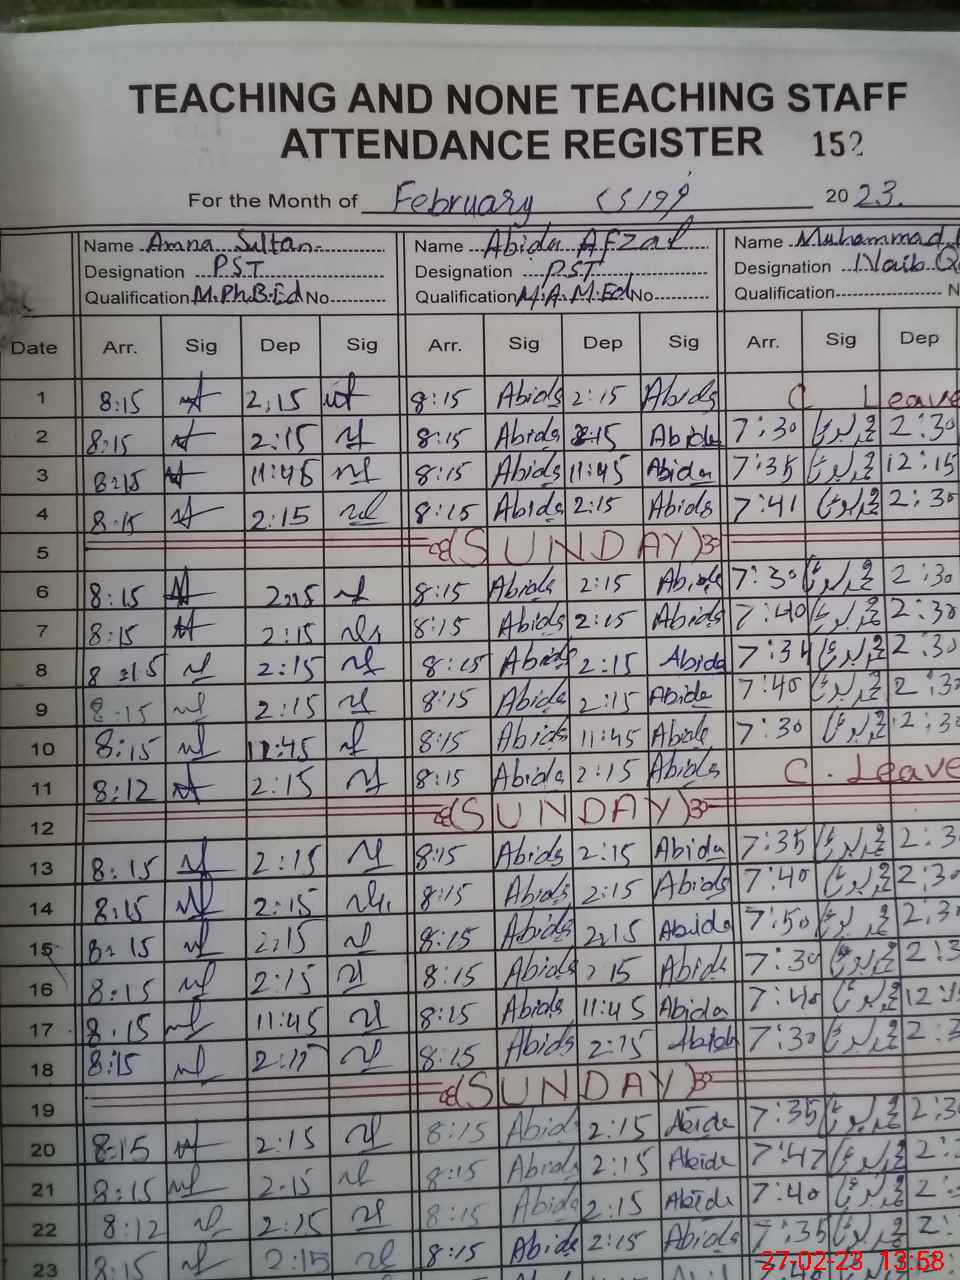 TEACHING AND NONE TEACHING STAFF
ATTENDANCE REGISTER 152
For the Month of February (S199) 2023.
Name Amna Sultan Name Abida Afzal Name Muhammad
Designation PST Designation PST Designation Naib Q
Qualification M.Ph.B.Ed No Qualification M.A.M.Ed No Qualification N
Date Arr. Sig Dep Sig Arr. Sig Dep Sig Arr. Sig Dep
1 8:15 2:15 8:15 Abida 2:15 Abida C Leave
2 8:15 2:15 8:15 Abida 2:15 Abida 7:30 2:30
3 8:15 11:45 8:15 Abida 11:45 Abida 7:35 12:15
4 8:15 2:15 8:15 Abida 2:15 Abida 7:41 2:30
5 (SUNDAY)
6 8:15 2:15 8:15 Abida 2:15 Abida 7:30 2:30
7 8:15 2:15 8:15 Abida 2:15 Abida 7:40 2:30
8 8:15 2:15 8:15 Abida 2:15 Abida 7:34 2:30
9 8:15 2:15 8:15 Abida 2:15 Abida 7:40 2:3
10 8:15 11:45 8:15 Abida 11:45 Abida 7:30 12:30
11 8:12 2:15 8:15 Abida 2:15 Abida C. Leave
12 (SUNDAY)
13 8:15 2:15 8:15 Abida 2:15 Abida 7:35 2:3
14 8:15 2:15 8:15 Abida 2:15 Abida 7:40 2:30
15 8:15 2:15 8:15 Abida 2:15 Abida 7:50 2:30
16 8:15 2:15 8:15 Abida 2:15 Abida 7:30 2:3
17 8:15 11:45 8:15 Abida 11:45 Abida 7:40 12:1
18 8:15 2:15 8:15 Abida 2:15 Abida 7:30 2:3
19 (SUNDAY)
20 8:15 2:15 8:15 Abida 2:15 Abida 7:35 2:3
21 8:15 2:15 8:15 Abida 2:15 Abida 7:47 2:
22 8:12 2:15 8:15 Abida 2:15 Abida 7:40 2:
23 8:15 2:15 8:15 Abida 2:15 Abida 7:35 2:
27-02-23 13:58